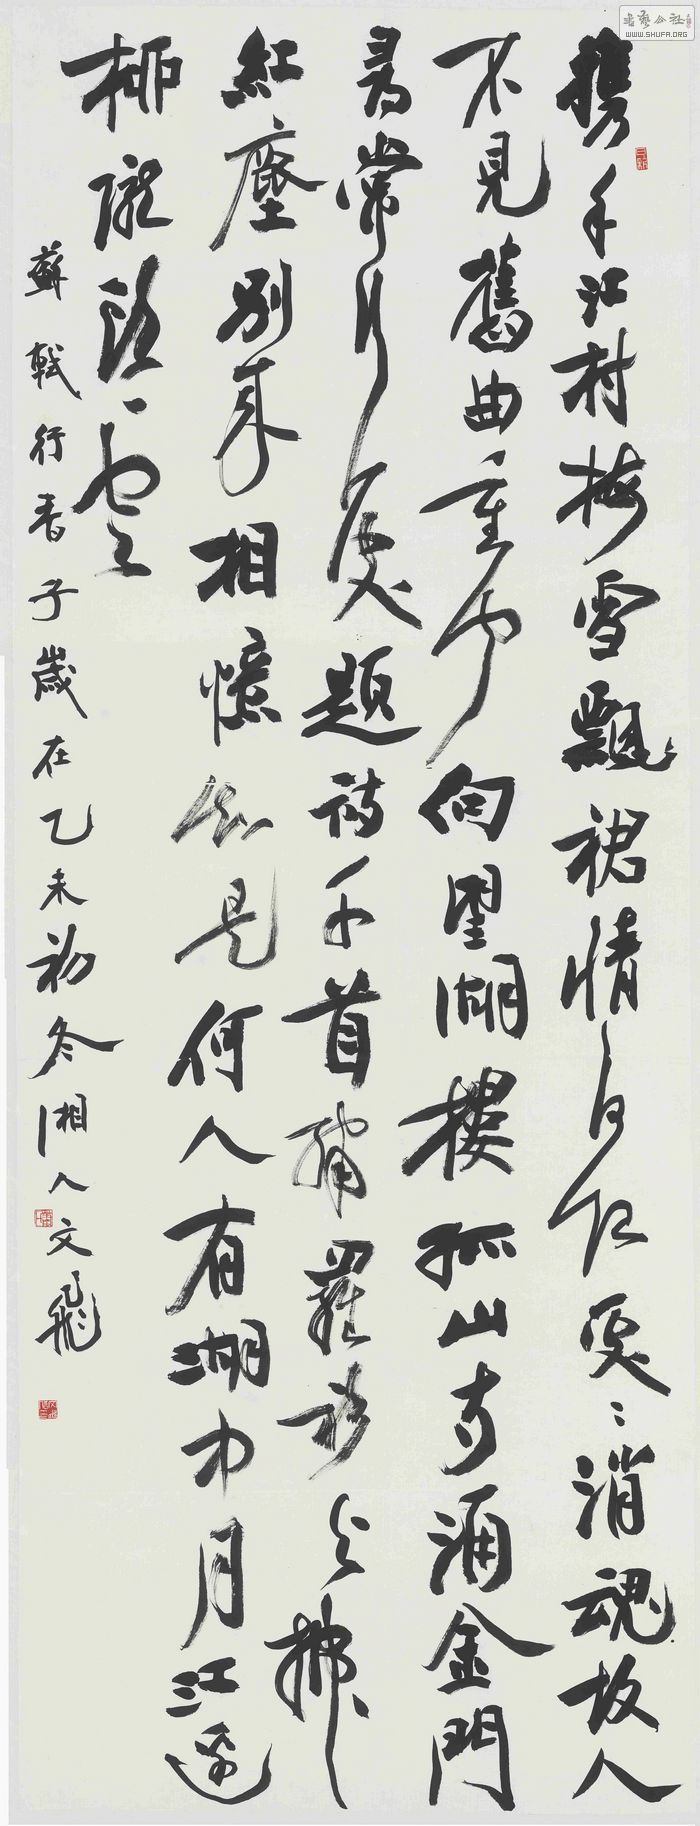 攜手江村梅雪飄裙情何限處〻消魂故人
不見舊曲重聞向望湖樓孤山寺涌金門
尋常行處題詩千首繡羅衫与拂
紅塵別來相憶知是何人有湖中月江邊
柳隴頭雲
蘇軾行香子歲在乙未初冬湘人文飛
書藝公社
WWW.SHUFA.ORG